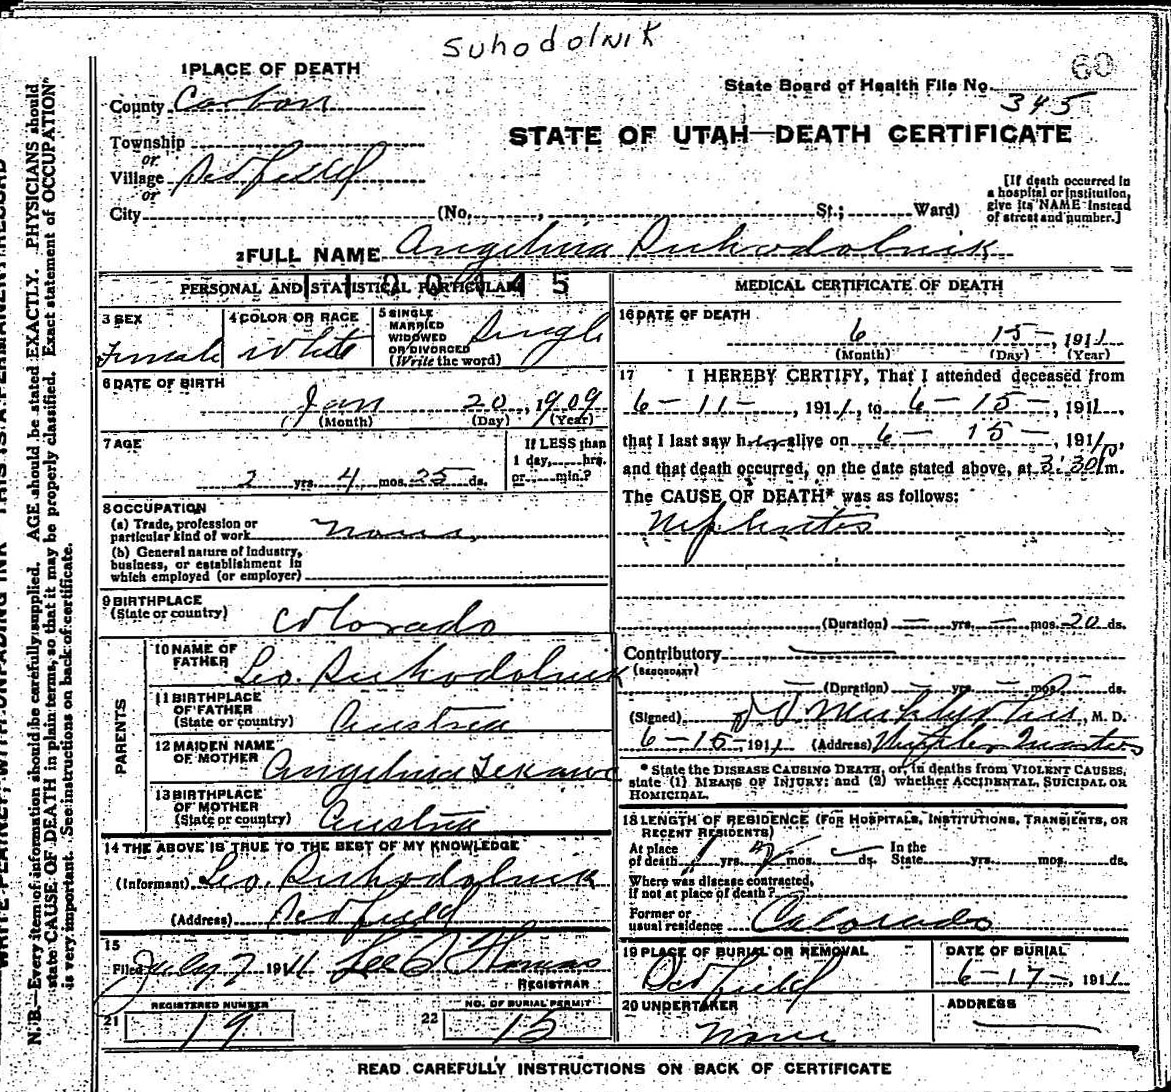 SUHODOLNIK
60
1 PLACE OF DEATH
State Board of Health File No. 345
County Carbon
STATE OF UTAH—DEATH CERTIFICATE
Township
or
Village
or
City (No. , St.; Ward)
[If death occurred in
a hospital or institution,
give its NAME instead
of street and number.]
2 FULL NAME Angelina Suhodolnik
PERSONAL AND STATISTICAL PARTICULARS
3 SEX
Female
4 COLOR OR RACE
White
5 SINGLE
MARRIED
WIDOWED
OR DIVORCED
(Write the word)
Single
6 DATE OF BIRTH
Jan 20, 1909
(Month) (Day) (Year)
7 AGE
2 yrs. 4 mos. 25 ds.
If LESS than
1 day, hrs.
or min.?
8 OCCUPATION
(a) Trade, profession or
particular kind of work None
(b) General nature of industry,
business, or establishment in
which employed (or employer)
9 BIRTHPLACE
(State or country)
Colorado
PARENTS
10 NAME OF
FATHER
Leo. Suhodolnik
11 BIRTHPLACE
OF FATHER
(State or country)
Austria
12 MAIDEN NAME
OF MOTHER
Angelina
13 BIRTHPLACE
OF MOTHER
(State or country)
Austria
14 THE ABOVE IS TRUE TO THE BEST OF MY KNOWLEDGE
(Informant) Leo. Suhodolnik
(Address)
15
Filed July 7 1911 Thomas
REGISTRAR
REGISTERED NUMBER
21 19
NO. OF BURIAL PERMIT
22 15
MEDICAL CERTIFICATE OF DEATH
16 DATE OF DEATH
6 15, 1911
(Month) (Day) (Year)
17 I HEREBY CERTIFY, That I attended deceased from
6-11-, 1911, to 6-15-, 1911,
that I last saw her alive on 6-15-, 1911,
and that death occurred, on the date stated above, at 3:30 P m.
The CAUSE OF DEATH* was as follows:
Nephritis
(Duration) — yrs. — mos. 20 ds.
Contributory —
(SECONDARY)
(Duration) — yrs. — mos. ds.
(Signed) , M. D.
6-15-1911 (Address) Quarters
* State the DISEASE CAUSING DEATH, or, in deaths from VIOLENT CAUSES,
state (1) MEANS OF INJURY; and (2) whether ACCIDENTAL, SUICIDAL OR
HOMICIDAL.
18 LENGTH OF RESIDENCE (FOR HOSPITALS, INSTITUTIONS, TRANSIENTS, OR
RECENT RESIDENTS)
At place In the
of death 1 yrs. mos. ds. State yrs. mos. ds.
Where was disease contracted,
if not at place of death?
Former or
usual residence Colorado
19 PLACE OF BURIAL OR REMOVAL
DATE OF BURIAL
6-17-, 1911
20 UNDERTAKER
None
ADDRESS
READ CAREFULLY INSTRUCTIONS ON BACK OF CERTIFICATE
N. B.—Every item of information should be carefully supplied. AGE should be stated EXACTLY. PHYSICIANS should
state CAUSE OF DEATH in plain terms, so that it may be properly classified. Exact statement of OCCUPATION
is very important. See instructions on back of certificate.